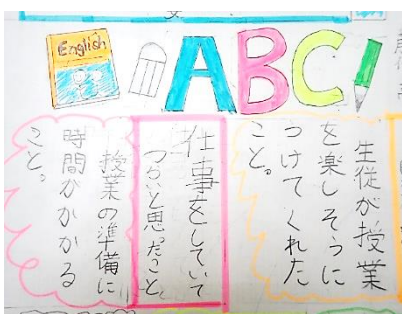 English
ABC
生徒が授業
を楽しそうに
つけてくれた
こと。
仕事をしていて
つらいと思ったこと
授業の準備に
時間がかかる
こと。